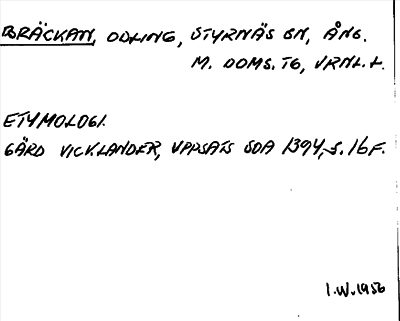 BRÄCKAN, ODLING, STYRNÄS SN, ÅNG.
M. DOMS. TG, VRNL. L.
ETYMOLOGI.
GÄRD VICKLANDER, UPPSATS SOA 1394, S. 16 F.
I.W. 1956